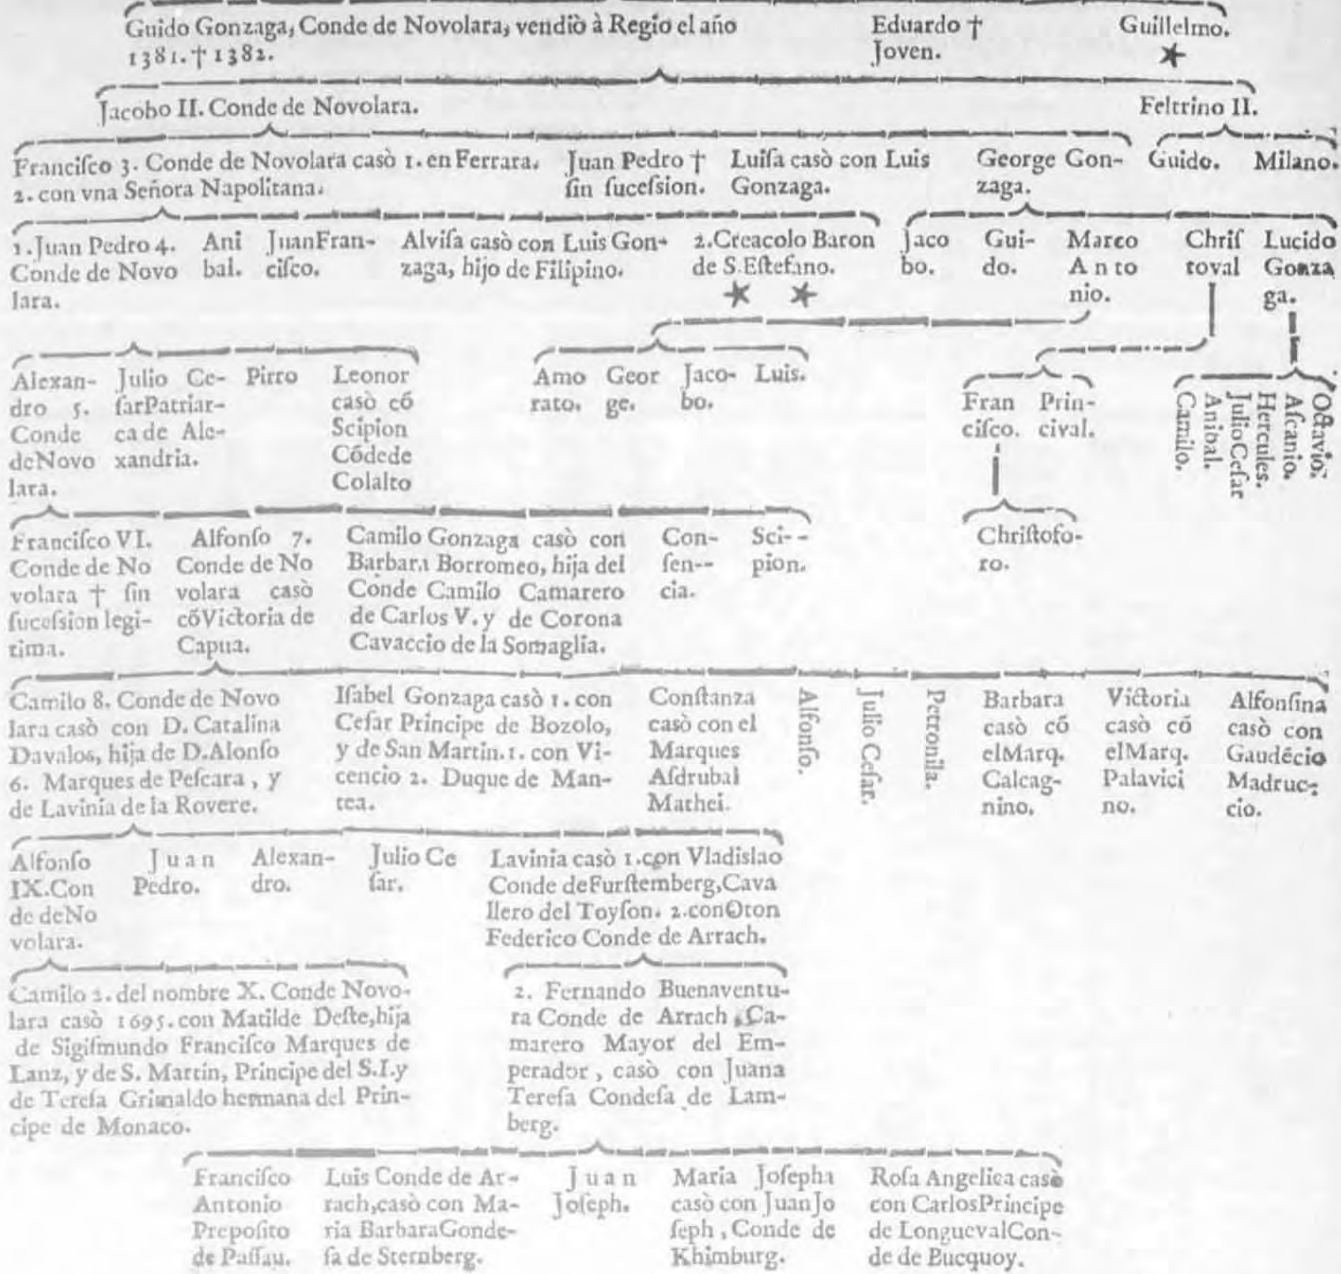 Guido Gonzaga, Conde de Novolara, vendiò à Regio el año
1381. † 1382.
Eduardo †
Joven.
Guillelmo.
Jacobo II. Conde de Novolara.
Feltrino II.
Franciſco 3. Conde de Novolara casò 1. en Ferrara.
2. con vna Señora Napolitana.
Juan Pedro †
ſin ſuceſsion.
Luiſa casò con Luis
Gonzaga.
George Gon-
zaga.
Guido.
Milano.
1. Juan Pedro 4.
Conde de Novo
lara.
Ani
bal.
JuanFran-
ciſco.
Alviſa casò con Luis Gon-
zaga, hijo de Filipino.
2. Creacolo Baron
de S. Eſtefano.
Jaco
bo.
Gui-
do.
Marco
Anto
nio.
Chriſ
toval
Lucido
Gonza
ga.
Alexan-
dro 5.
Conde
deNovo
lara.
Julio Ce-
ſarPatriar-
ca de Ale-
xandria.
Pirro
Leonor
casò cõ
Scipion
Cõdede
Colalto
Amo
rato.
Geor
ge.
Jaco-
bo.
Luis.
Fran
ciſco.
Prin-
cival.
Octavio.
Aſcanio.
Hercules.
JulioCeſar
Anibal.
Camilo.
Chriſtofo-
ro.
Franciſco VI.
Conde de No
volara † ſin
ſuceſsion legi-
tima.
Alfonſo 7.
Conde de No
volara casò
cõVictoria de
Capua.
Camilo Gonzaga casò con
Barbara Borromeo, hija del
Conde Camilo Camarero
de Carlos V. y de Corona
Cavaccio de la Somaglia.
Con-
ſen--
cia.
Sci--
pion.
Camilo 8. Conde de Novo
lara casò con D. Catalina
Davalos, hija de D. Alonſo
6. Marques de Peſcara, y
de Lavinia de la Rovere.
Iſabel Gonzaga casò 1. con
Ceſar Principe de Bozolo,
y de San Martin. 1. con Vi-
cencio 2. Duque de Man-
tea.
Conſtanza
casò con el
Marques
Aſdrubal
Mathei.
Alfonſo.
Julio Ceſar.
Petronila.
Barbara
casò cõ
elMarq.
Calcag-
nino.
Victoria
casò cõ
elMarq.
Palavici
no.
Alfonſina
casò con
Gaudēcio
Madruc-
cio.
Alfonſo
IX. Con
de deNo
volara.
Juan
Pedro.
Alexan-
dro.
Julio Ce
ſar.
Lavinia casò 1. con Vladislao
Conde deFurſtemberg, Cava
llero del Toyſon. 2. conOton
Federico Conde de Arrach.
Camilo 2. del nombre X. Conde Novo-
lara casò 1695. con Matilde Deſte, hija
de Sigiſmundo Franciſco Marques de
Lanz, y de S. Martin, Principe del S.I. y
de Tereſa Grimaldo hermana del Prin-
cipe de Monaco.
2. Fernando Buenaventu-
ra Conde de Arrach, Ca-
marero Mayor del Em-
perador, casò con Juana
Tereſa Condeſa de Lam-
berg.
Franciſco
Antonio
Prepoſito
de Paſſau.
Luis Conde de Ar-
rach, casò con Ma-
ria BarbaraGonde-
ſa de Sternberg.
Juan
Joſeph.
Maria Joſepha
casò con JuanJo
ſeph, Conde de
Khimburg.
Roſa Angelica casò
con CarlosPrincipe
de LonguevalCon-
de de Bucquoy.